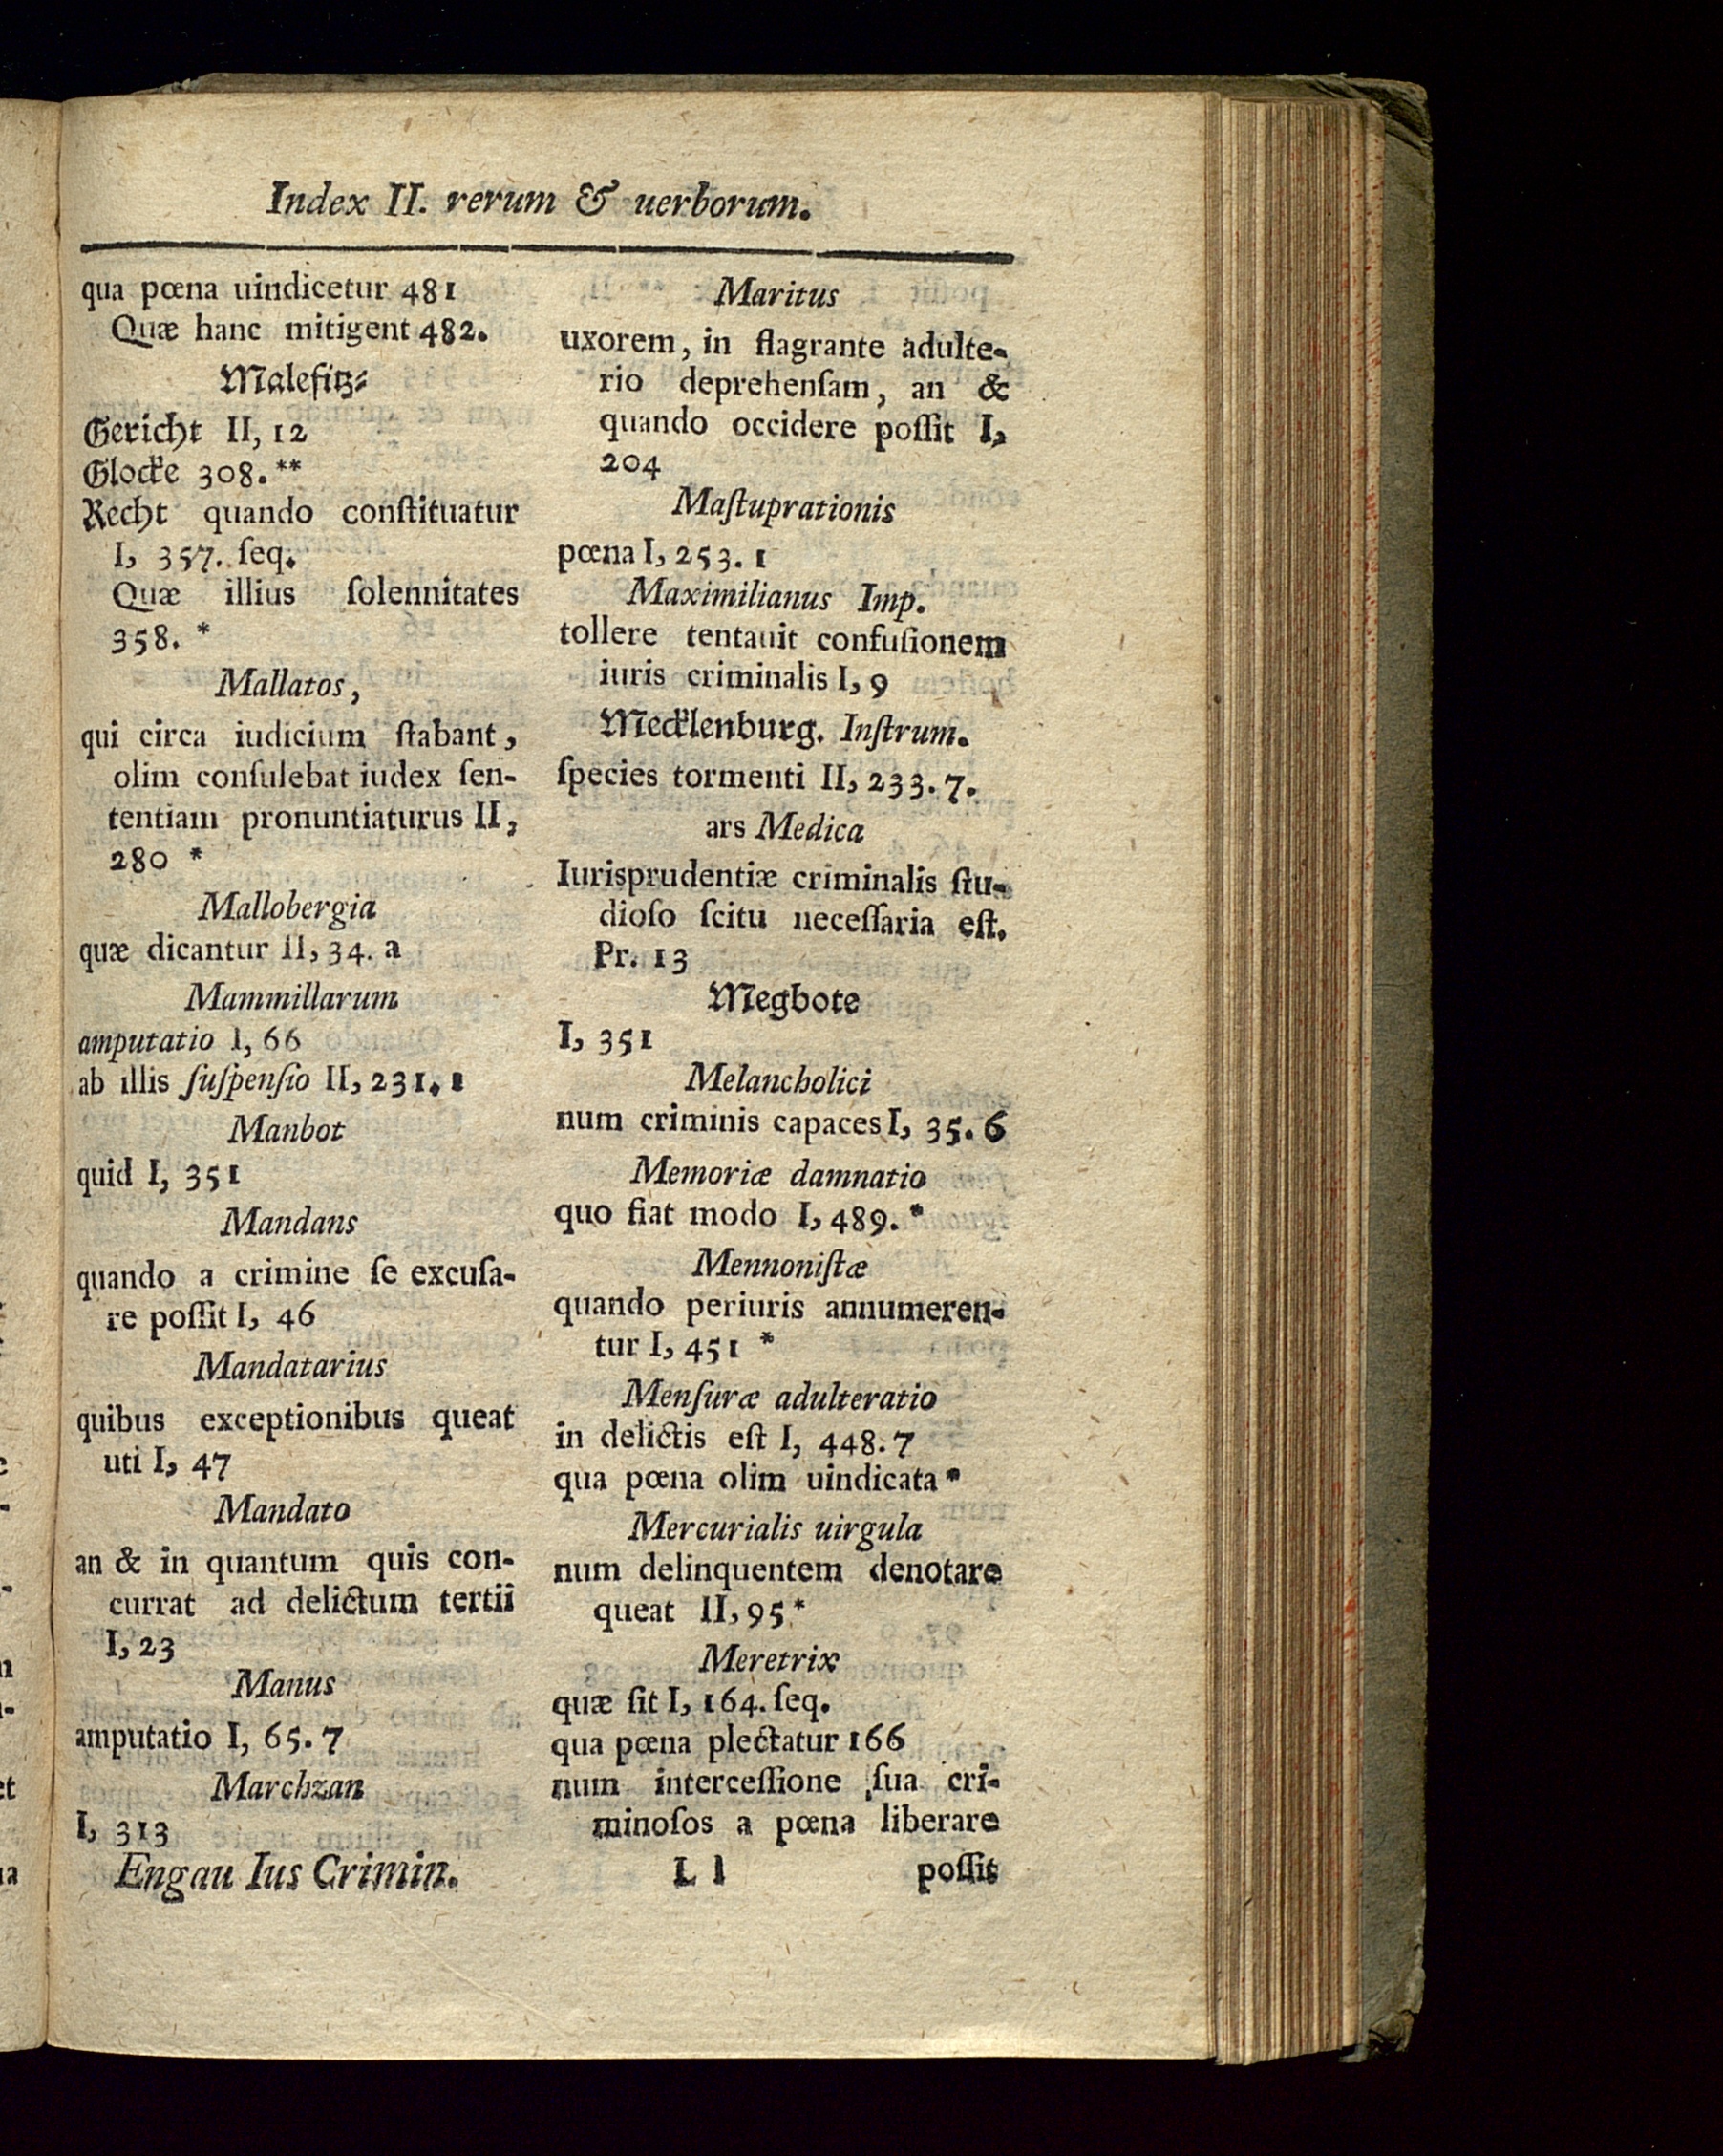 Index II. rerum & uerborum.
qua pœna uindicetur 481
Quæ hanc mitigent 482.
Malefitz⸗
Gericht II, 12
Glocke 308. **
Recht quando conſtituatur
I, 357. ſeq.
Quæ illius ſolennitates
358. *
Mallatos,
qui circa iudicium ſtabant,
olim conſulebat iudex ſen-
tentiam pronuntiaturus II,
280 *
Mallobergia
quæ dicantur II, 34. a
Mammillarum
amputatio I, 66
ab illis ſuſpenſio II, 231. 1
Manbot
quid I, 351
Mandans
quando a crimine ſe excuſa-
re poſſit I, 46
Mandatarius
quibus exceptionibus queat
uti I, 47
Mandato
an & in quantum quis con-
currat ad delictum tertii
I, 23
Manus
amputatio I, 65. 7
Marchzan
I, 313
Maritus
uxorem, in flagrante adulte-
rio deprehenſam, an &
quando occidere poſſit I,
204
Maſtuprationis
pœna I, 253. 1
Maximilianus Imp.
tollere tentauit confuſionem
iuris criminalis I, 9
Mecklenburg. Inſtrum.
ſpecies tormenti II, 233. 7.
ars Medica
Iurisprudentiæ criminalis ſtu-
dioſo ſcitu neceſſaria eſt.
Pr. 13
Megbote
I, 351
Melancholici
num criminis capaces I, 35. 6
Memoriæ damnatio
quo fiat modo I, 489. *
Mennoniſtæ
quando periuris annumeren-
tur I, 451 *
Menſuræ adulteratio
in delictis eſt I, 448. 7
qua pœna olim uindicata *
Mercurialis uirgula
num delinquentem denotare
queat II, 95 *
Meretrix
quæ ſit I, 164. ſeq.
qua pœna plectatur 166
num interceſſione ſua cri-
minoſos a pœna liberare
Engau Ius Crimin. L l poſſit